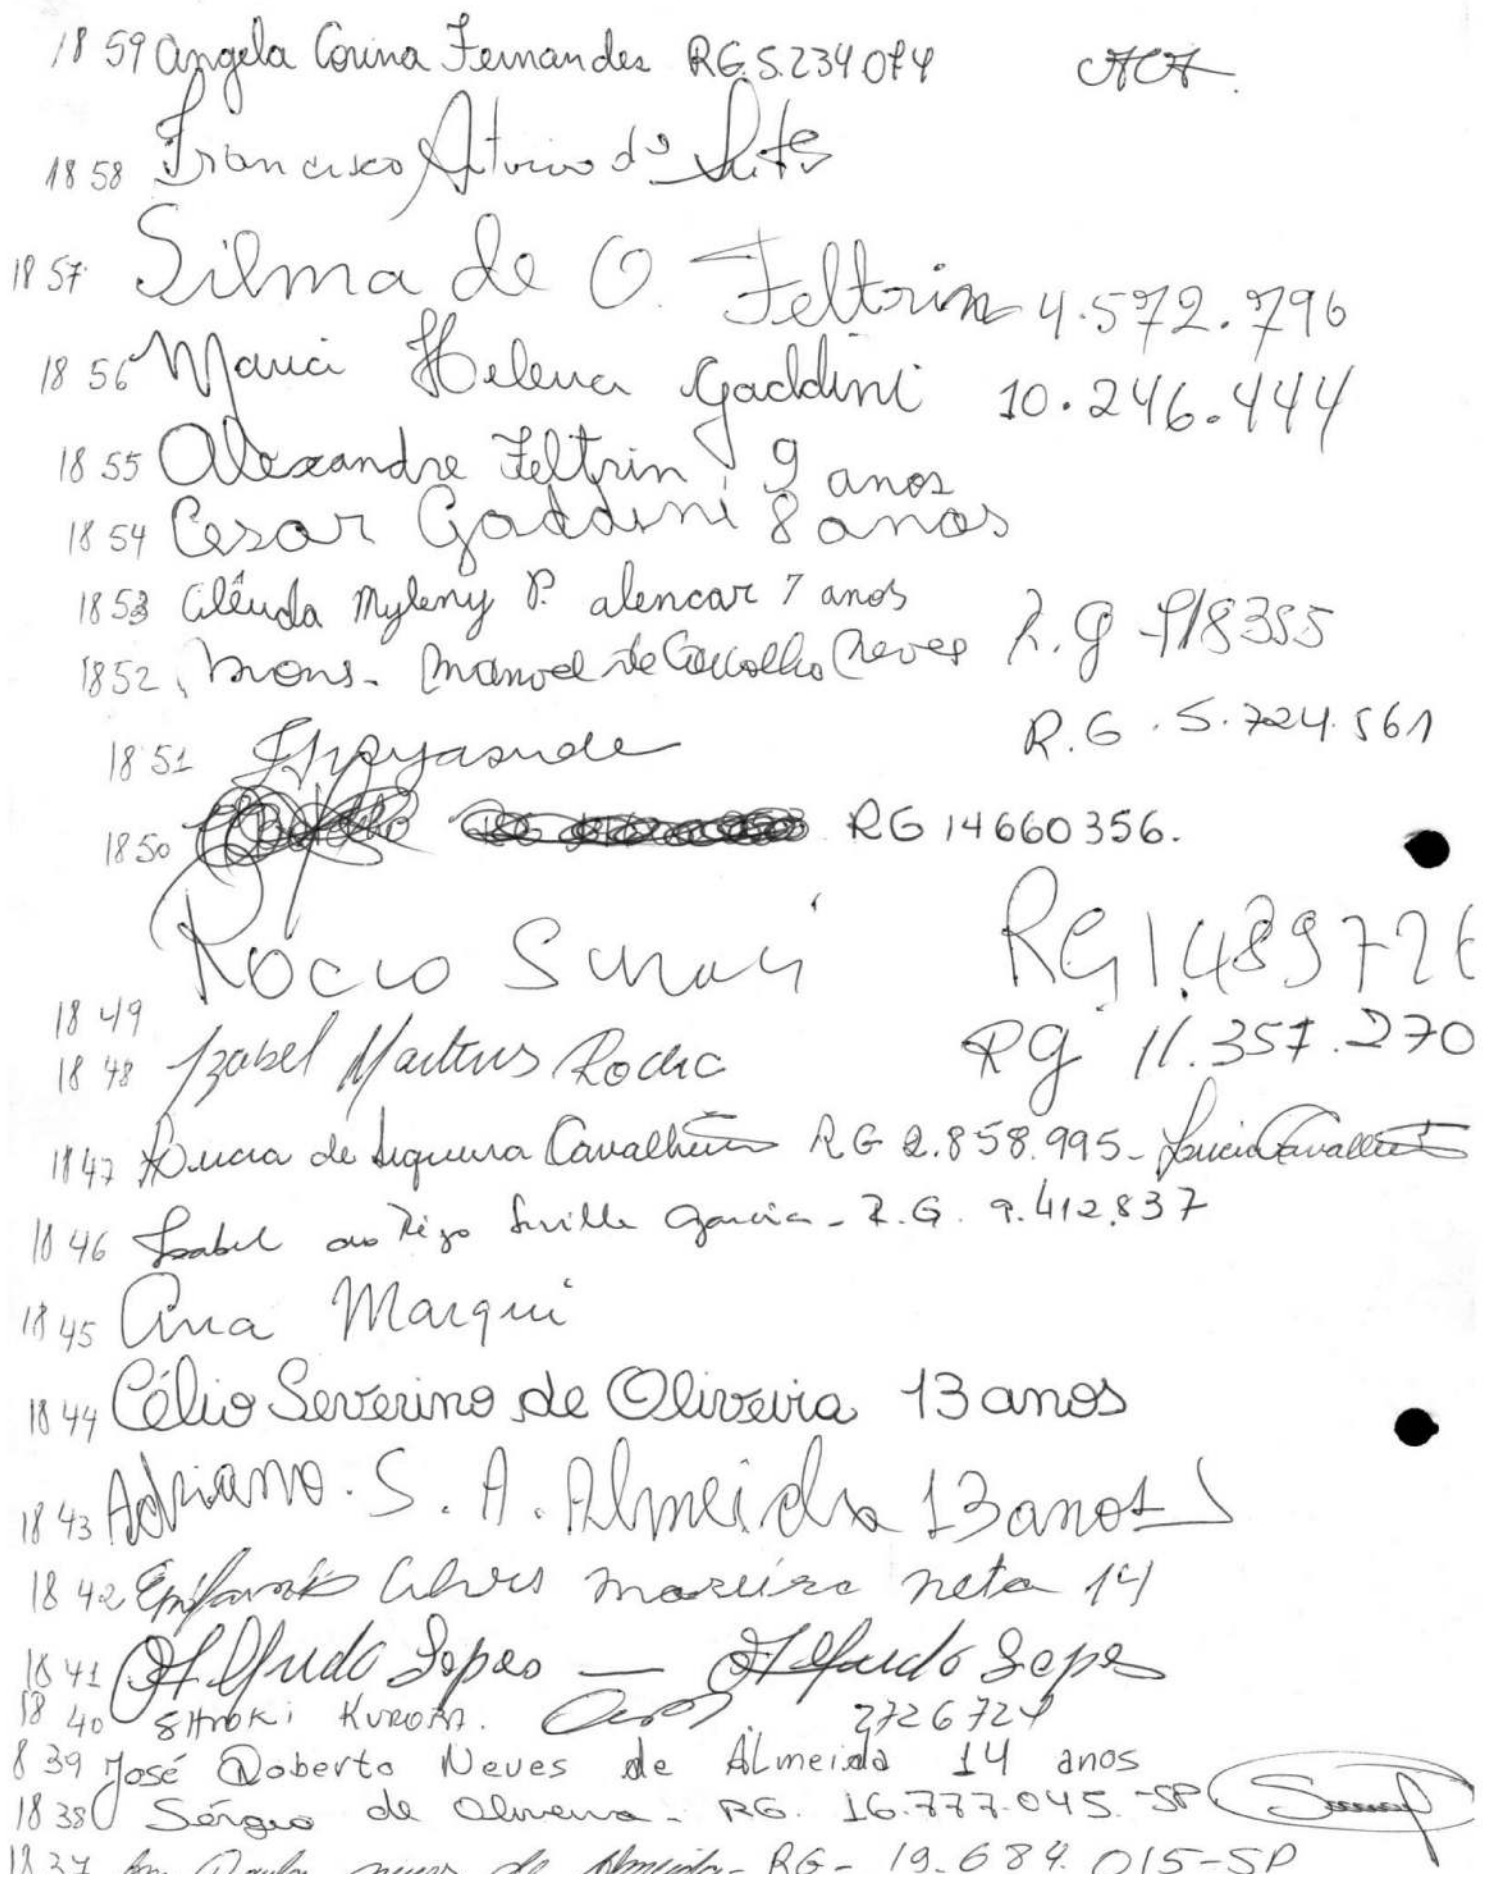 1859 Angela Corina Fernandes RG.5.234074
1858 Francisco
1857 Silma de O. Feltrin 4.572.796
1856 Maria Helena Gaddini 10.246.444
1855 Alexandre Feltrin 9 anos
1854 Cesar Gaddini 8 anos
1853 Myleny P. alencar 7 anos
1852 Mons. Manoel de Carvalho Neves R.g 918355
1851 R.G. 5.724.561
1850 RG 14660356.
Rocio RG 1.489726
1849
1848 Izabel Martins Rocha Rg 11.357.270
1847 Lucia de Siqueira Cavalheiro RG 2.858.995-
1846 Isabel do Rêgo Garcia - R.G. 9.412.837
1845 Ana Marqui
1844 Célio Severino de Oliveira 13 anos
1843 Adriano. S. A. Almeida 13 anos
1842 Alves moreira neta 14
1841 Alfredo Lopes — Alfredo Lopes
1840 2726724
839 José Roberto Neves de Almeida 14 anos
1838 Sérgio de Oliveira - RG. 16.777.045.-SP
1837 neves de Almeida - RG - 19.684.015-SP